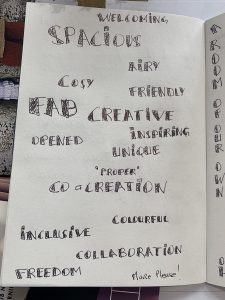 WELCOMING
SPACIOUS
AIRY
COSY
FRIENDLY
FAB CREATIVE
INSPIRING
OPENED
UNIQUE
"PROPER"
CO-CREATION
COLOURFUL
INCLUSIVE
COLLABORATION
FREEDOM
More Please!
A ROOM OF OUR OWN